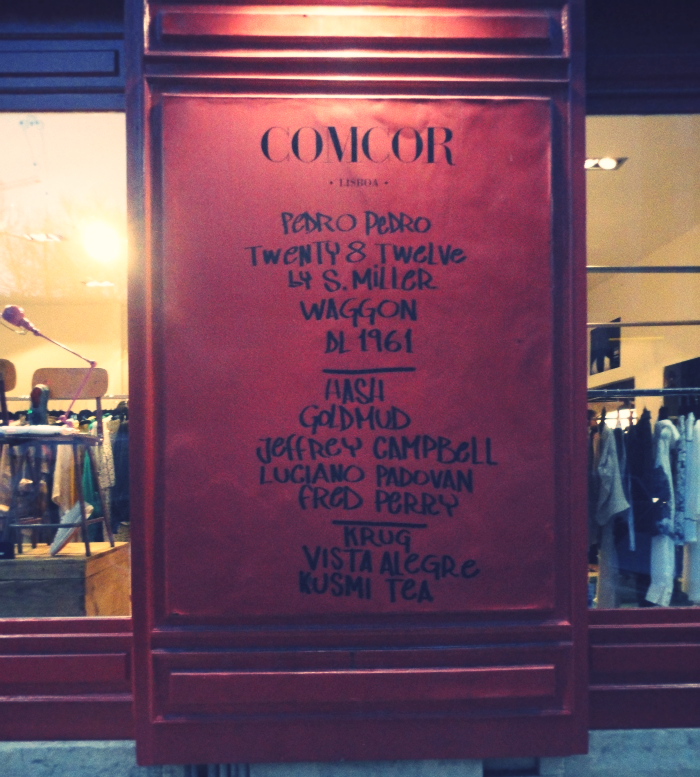 COMCOR
• LISBOA •
PEDRO PEDRO
TWENTY 8 TWELVE
by S. MILLER
WAGGON
DL 1961
HASH
GOLDMUD
JEFFREY CAMPBELL
LUCIANO PADOVAN
FRED PERRY
KRUG
VISTA ALEGRE
KUSMI TEA